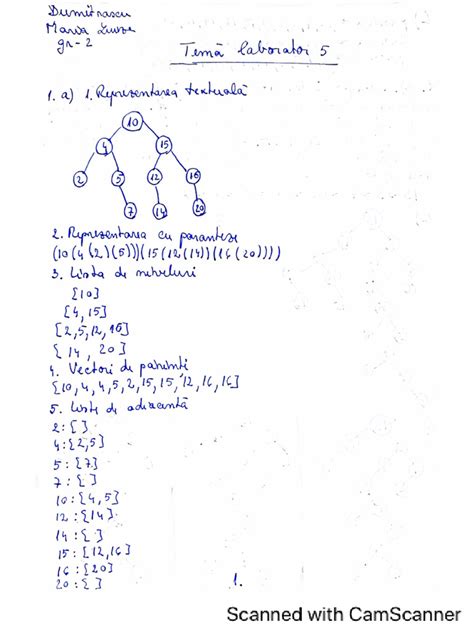 Dumitrascu
Maria Luiza
gr-2
Temă laborator 5
1. a) 1. Reprezentarea textuală
10
4 15
2 5 12 16
7 14 20
2. Reprezentarea cu paranteze
(10(4(2)(5)))(15(12(14))(16(20))))
3. Lista de niveluri
{10}
{4, 15}
{2,5,12,16}
{14, 20}
4. Vectori de parinti
{10, 4, 4, 5, 2, 15, 15, 12, 16, 16}
5. Liste de adiacentă
2: { }
4: {2,5}
5: {7}
7: { }
10: {4,5}
12: {14}
14: { }
15: {12,16}
16: {20}
20: { }
1.
Scanned with CamScanner